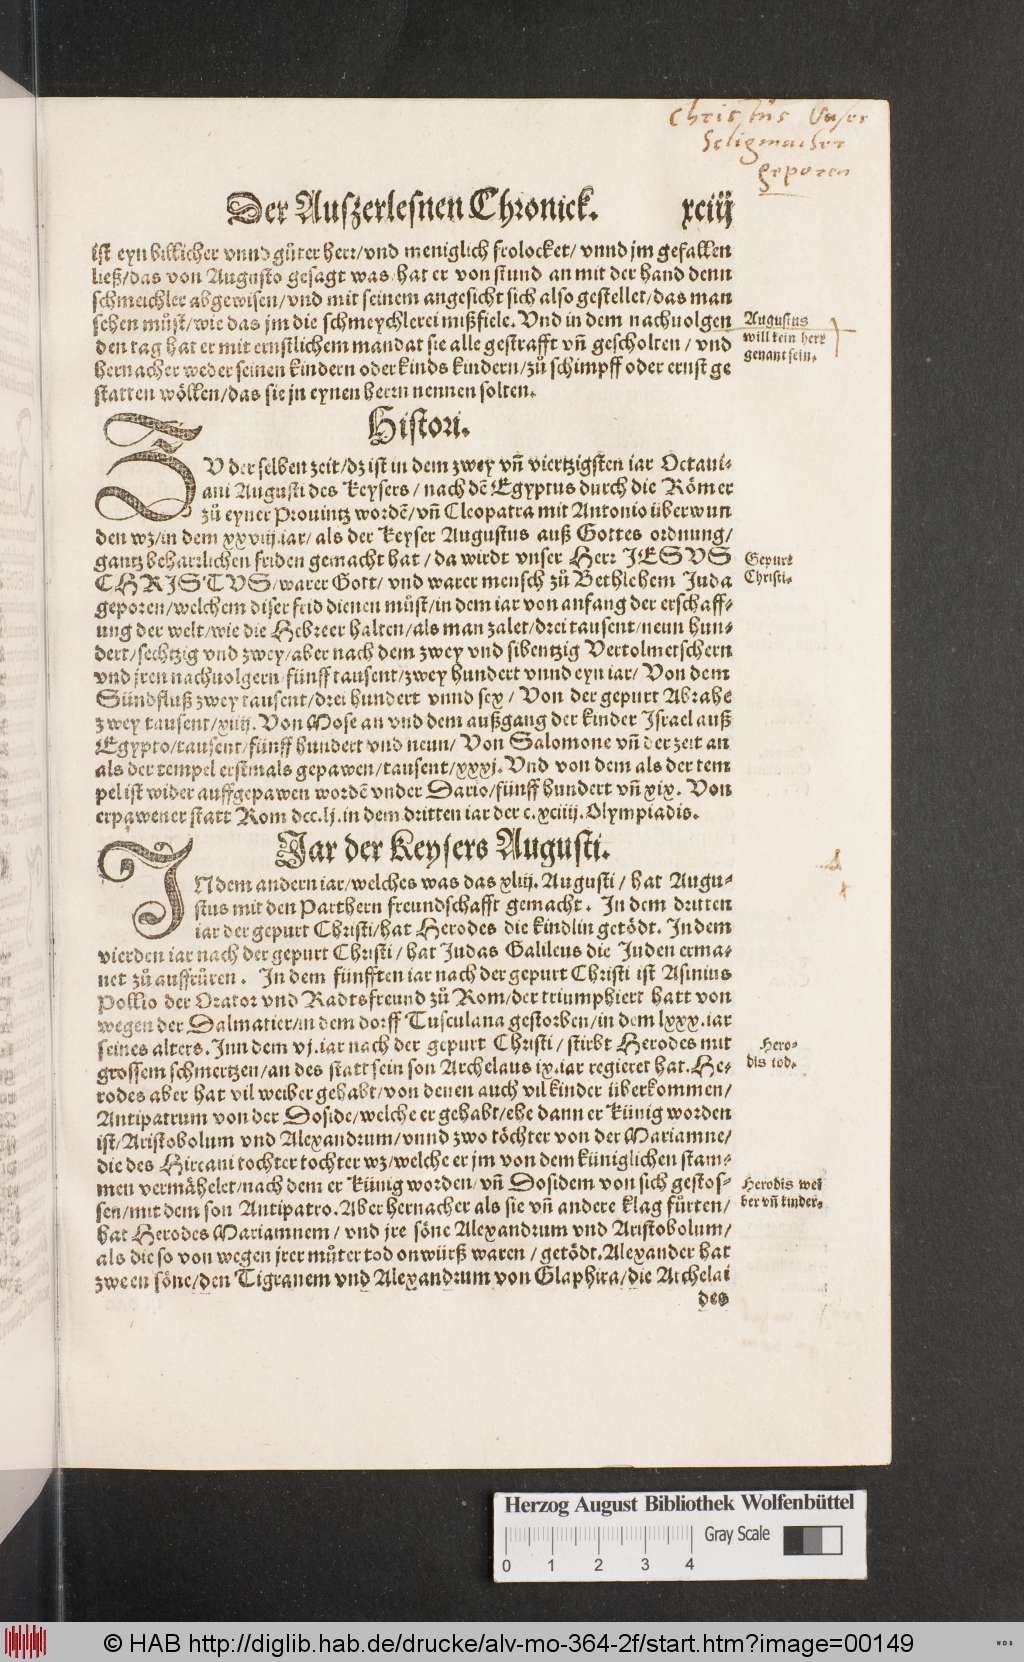 Christus Unser
Seligmacher
geporen
Der Auszerlesnen Chronick. xciij
ist eyn billicher vnnd gůter herr/vnd meniglich frolocket/ vnnd jm gefallen
ließ/das von Augusto gesagt was/hat er von stund an mit der hand denn
schmeichler abgewisen/vnd mit seinem angesicht sich also gestellet/das man
sehen můst/wie das jm die schmeychlerei mißfiele. Vnd in dem nachuolgen
den tag hat er mit ernstlichem mandat sie alle gestrafft vñ gescholten / vnd
hernacher weder seinen kindern oder kinds kindern/zů schimpff oder ernst ge
statten wöllen/das sie jn eynen herrn nennen solten.
Augustus
will kein herr
genant sein.
Histori.
ZV der selben zeit/dz ist in dem zwey vñ viertzigsten iar Octaui-
ani Augusti des Keysers / nach dẽ Egyptus durch die Römer
zů eyner Prouintz wordẽ/vñ Cleopatra mit Antonio überwun
den wz/in dem xxviij.iar/ als der Keyser Augustus auß Gottes ordnung/
gantz beharrlichen friden gemacht hat / da wirdt vnser Herr JESVS
CHRJSTVS/warer Gott/ vnd warer mensch zů Bethlehem Juda
geporen/welchem diser frid dienen můst/in dem iar von anfang der erschaff-
ung der welt/wie die Hebreer halten/als man zalet/drei tausent/neun hun-
dert/sechtzig vnd zwey/aber nach dem zwey vnd sibentzig Vertolmetschern
vnd jren nachuolgern fünff tausent/zwey hundert vnnd eyn iar/ Von dem
Sündfluß zwey tausent/drei hundert vnnd sex / Von der gepurt Abrahe
zwey tausent/xiiij. Von Mose an vnd dem außgang der kinder Israel auß
Egypto/tausent/fünff hundert vnd neun/ Von Salomone vñ der zeit an
als der tempel erstmals gepawen/tausent/xxxj. Vnd von dem als der tem
pel ist wider auffgepawen wordẽ vnder Dario/fünff hundert vñ xix. Von
erpawener statt Rom dcc.lj.in dem dritten iar der c.xciiij. Olympiadis.
Gepurt
Christi.
Jar der Keysers Augusti.
JN dem andern iar/welches was das xliij. Augusti / hat Augu-
stus mit den Parthern freundschafft gemacht. In dem dritten
iar der gepurt Christi/hat Herodes die kindlin getödt. In dem
vierden iar nach der gepurt Christi / hat Judas Galileus die Juden erma-
net zů auffrůren. In dem fünfften iar nach der gepurt Christi ist Asinius
Pollio der Orator vnd Radtsfreund zů Rom/der triumphiert hatt von
wegen der Dalmatier/in dem dorff Tusculana gestorben/in dem lxxx.iar
seines alters. Inn dem vj.iar nach der gepurt Christi / stirbt Herodes mit
grossem schmertzen/an des statt sein son Archelaus ix.iar regieret hat. He-
rodes aber hat vil weiber gehabt/von denen auch vil kinder überkommen/
Antipatrum von der Doside/welche er gehabt/ehe dann er Künig worden
ist/Aristobolum vnd Alexandrum/vnnd zwo töchter von der Mariamne/
die des Hircani tochter tochter wz/welche er jm von dem küniglichen stam-
men vermähelet/nach dem er Künig worden/ vñ Dosidem von sich gestos-
sen/mit dem son Antipatro. Aber hernacher als sie vñ andere klag fůrten/
hat Herodes Mariamnem / vnd jre söne Alexandrum vnd Aristobolum/
als die so von wegen jrer můter tod onwürß waren / getödt. Alexander hat
zween söne/den Tigranem vnd Alexandrum von Glaphira/die Archelai
des
Hero-
dis tod.
Herodis wei
ber vñ kinder.
Herzog August Bibliothek Wolfenbüttel
0 1 2 3 4 Gray Scale
© HAB http://diglib.hab.de/drucke/alv-mo-364-2f/start.htm?image=00149